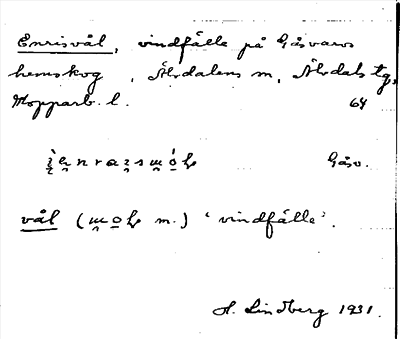 Enrisvål, vindfälle på Gåsvarvs
hemskog, Älvdalens sn, Älvdals tg,
Kopparb. l. 64
Gåsv.
vål ( m.) 'vindfälle'.
H. Lindberg 1931.